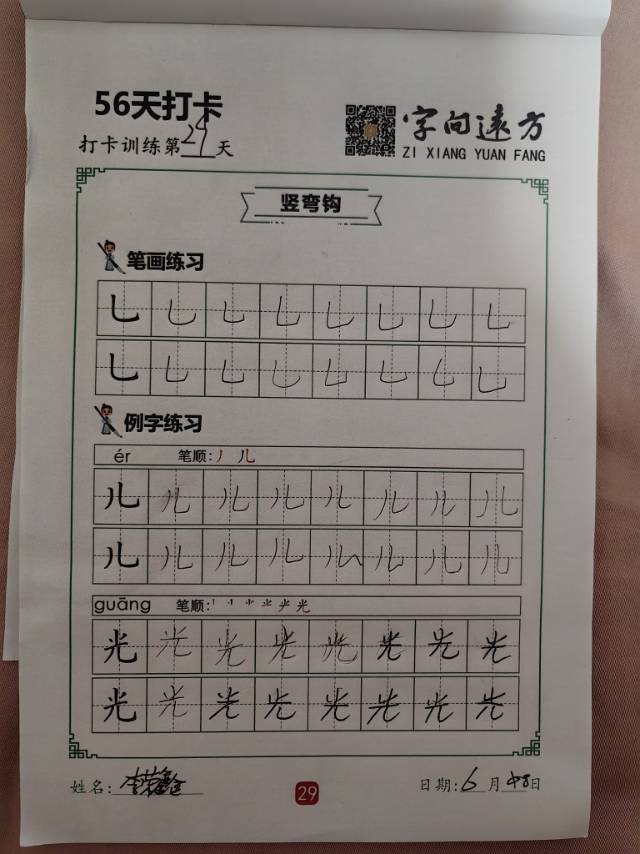 56天打卡
打卡训练第29天
字向遠方
ZI XIANG YUAN FANG
竖弯钩
笔画练习
乚 乚 乚 乚 乚 乚 乚 乚
乚 乚 乚 乚 乚 乚 乚 乚
例字练习
ér 笔顺: 丿 儿
儿 儿 儿 儿 儿 儿 儿 儿
儿 儿 儿 儿 儿 儿 儿 儿
guāng 笔顺:
光 光 光 光 光 光 光 光
光 光 光 光 光 光 光 光
姓名:
29
日期: 6月 日